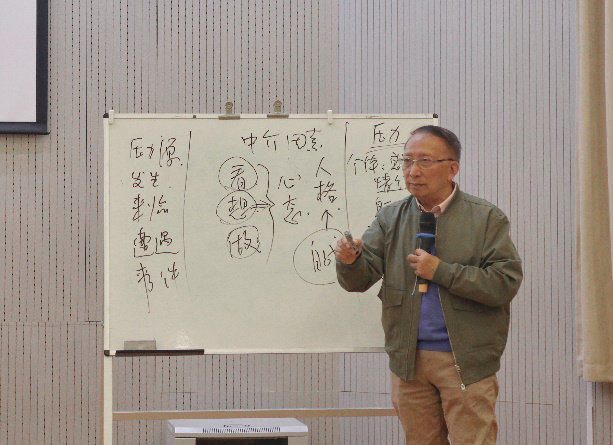 压力源
发生
来临
遭遇
事件
中介因素
看
想
做
心态
人格
压力
个体: